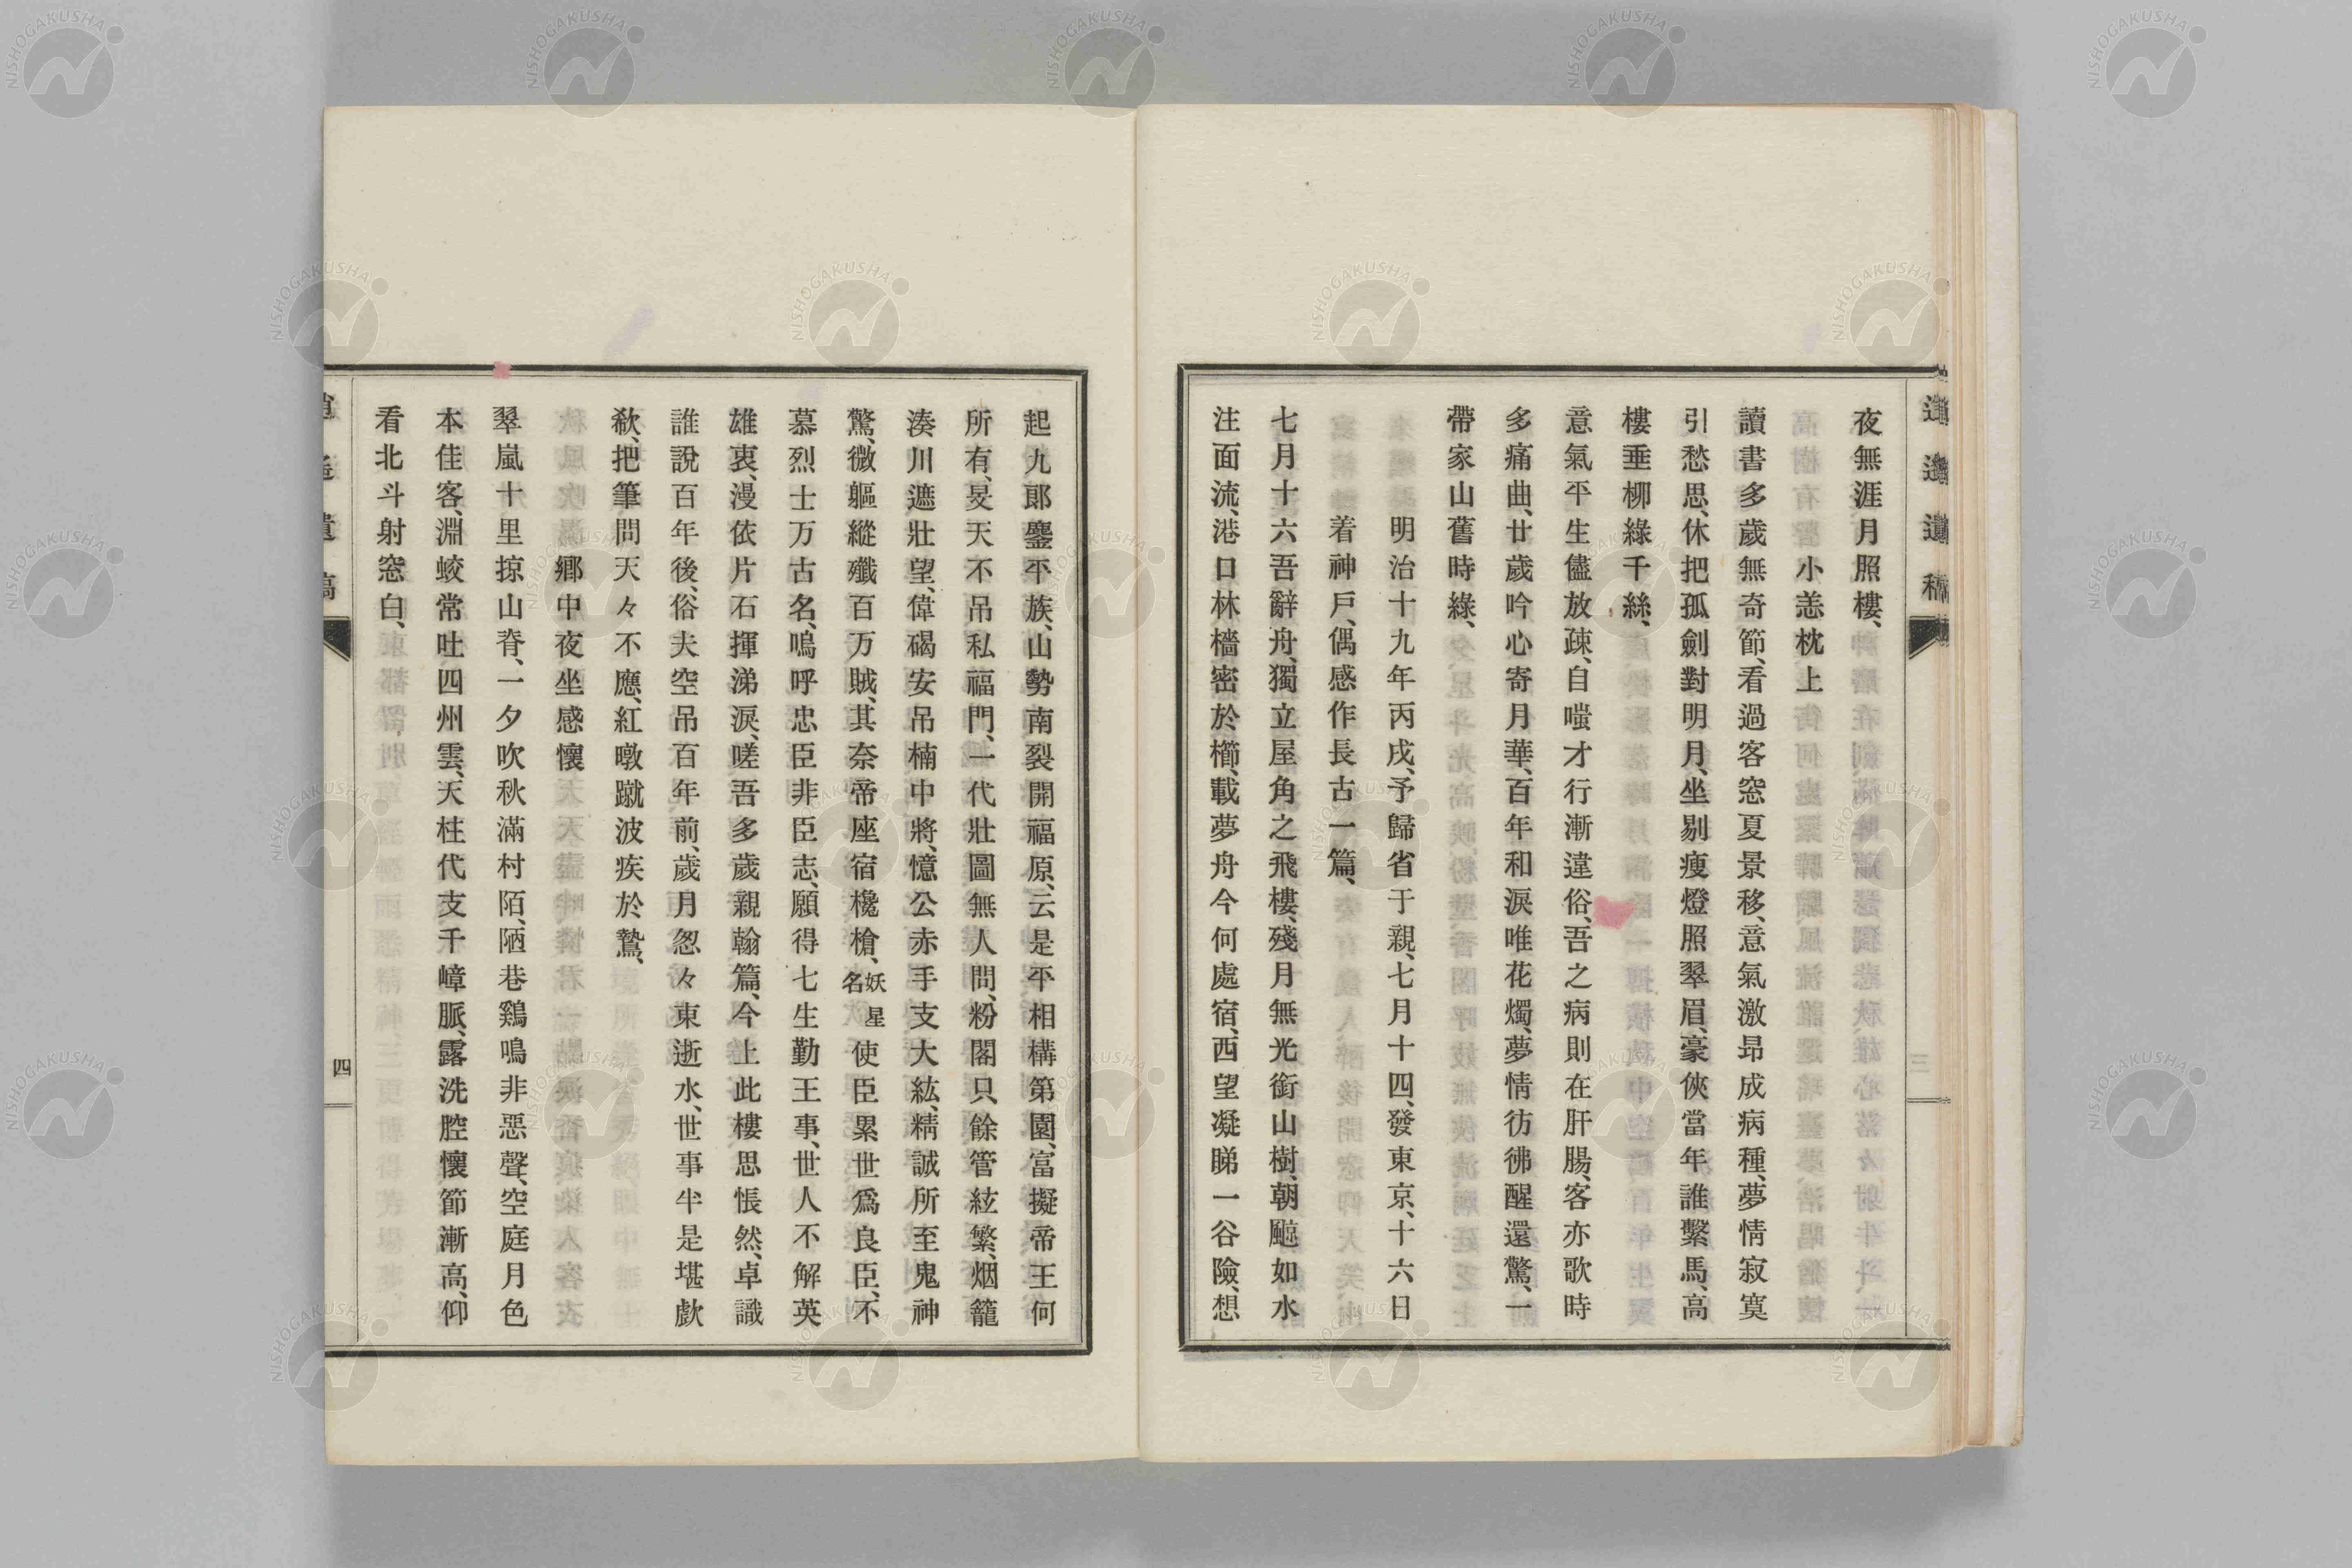 逍遙遺稿
三
夜無涯月照樓、
小恙枕上
讀書多歲無奇節、看過客窓夏景移、意氣激昂成病種、夢情寂寞
引愁思、休把孤劍對明月、坐剔瘦燈照翠眉、豪俠當年誰繫馬、高
樓垂柳綠千絲、
意氣平生儘放疎、自嗤才行漸違俗、吾之病則在肝腸、客亦歌時
多痛曲、廿歲吟心寄月華、百年和淚唯花燭、夢情彷彿醒還驚、一
帶家山舊時綠、
明治十九年丙戌、予歸省于親、七月十四、發東京、十六日
着神戶、偶感作長古一篇、
七月十六吾辭舟、獨立屋角之飛樓、殘月無光銜山樹、朝颸如水
注面流、港口林檣密於櫛、載夢舟今何處宿、西望凝睇一谷險、想
起九郞鏖平族、山勢南裂開福原、云是平相構第園、富擬帝王何
所有、旻天不吊私福門、一代壯圖無人問、粉閣只餘管絃繁、烟籠
湊川遮壯望、偉碣安吊楠中將、憶公赤手支大紘、精誠所至鬼神
驚、微軀縱殲百万賊、其奈帝座宿欃槍、妖星名使臣累世爲良臣、不
慕烈士万古名、嗚呼忠臣非臣志、願得七生勤王事、世人不解英
雄衷、漫依片石揮涕淚、嗟吾多歲親翰篇、今上此樓思悵然、卓識
誰說百年後、俗夫空吊百年前、歲月怱々東逝水、世事半是堪歔
欷、把筆問天々不應、紅暾蹴波疾於鷙、
鄕中夜坐感懷
翠嵐十里掠山脊、一夕吹秋滿村陌、陋巷鷄鳴非惡聲、空庭月色
本佳客、淵蛟常吐四州雲、天柱代支千嶂脈、露洗腔懷節漸高、仰
看北斗射窓白、
逍遙遺稿
四
NISHOGAKUSHA